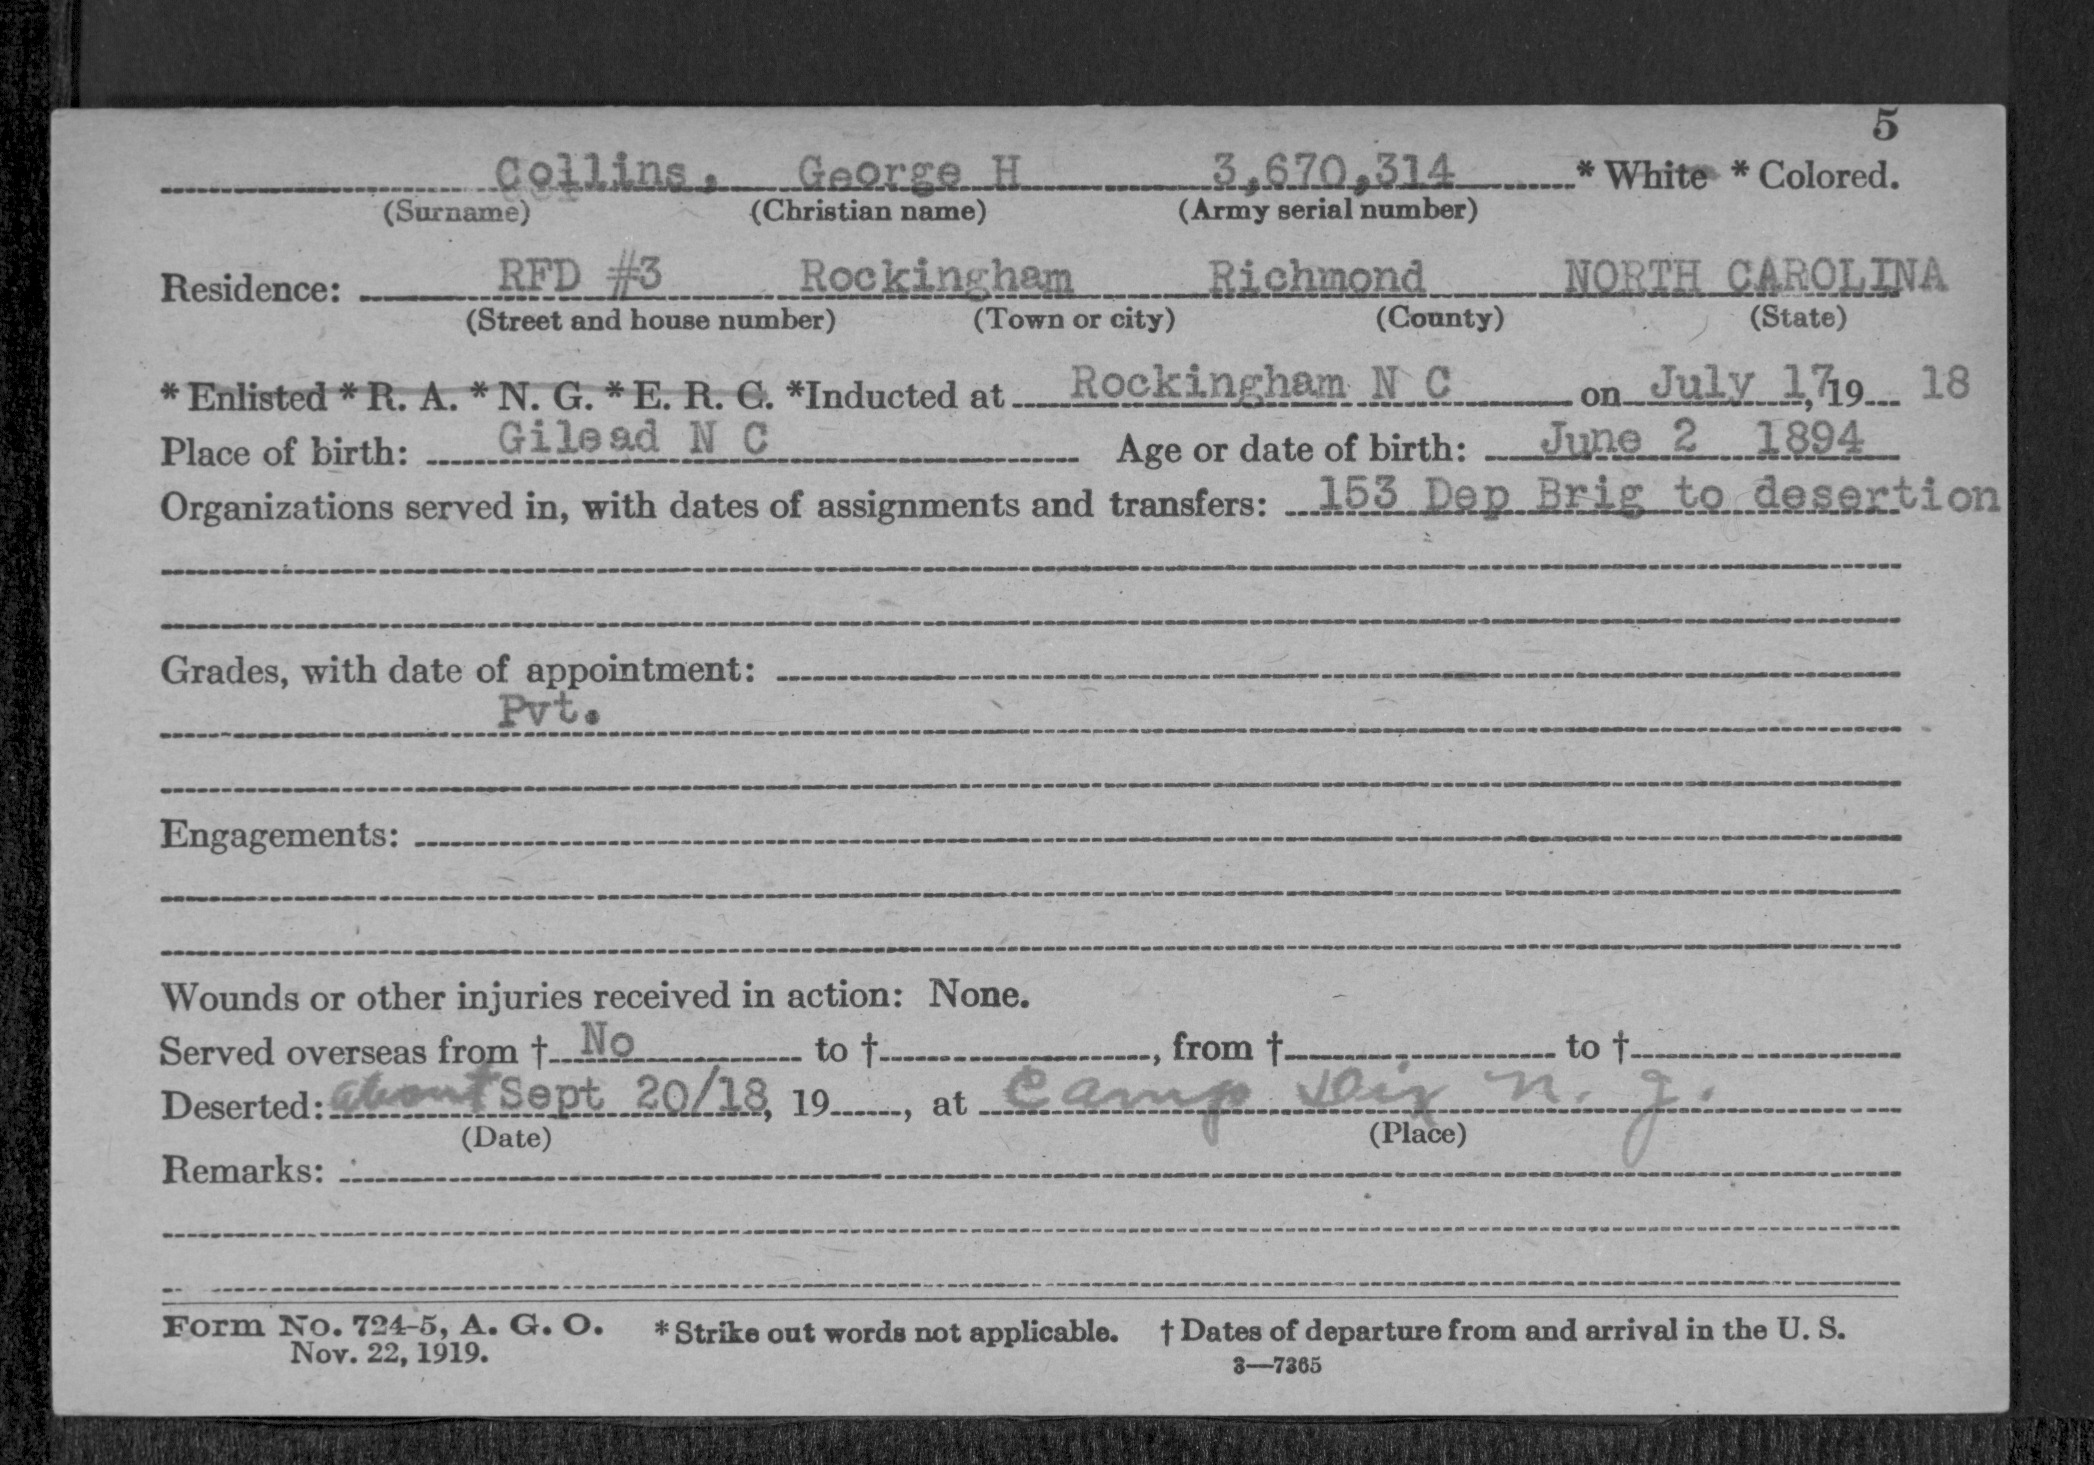 5
Collins, George H 3,670,314 * White * Colored.
(Surname) (Christian name) (Army serial number)
Residence: RFD #3 Rockingham Richmond NORTH CAROLINA
(Street and house number) (Town or city) (County) (State)
* Enlisted * R. A. * N. G. * E. R. C. *Inducted at Rockingham N C on July 17, 19 18
Place of birth: Gilead N C Age or date of birth: June 2 1894
Organizations served in, with dates of assignments and transfers: 153 Dep Brig to desertion
Grades, with date of appointment:
Pvt.
Engagements:
Wounds or other injuries received in action: None.
Served overseas from † No to †, from † to †
Deserted: about Sept 20/18, 19, at Camp Dix N. J.
(Date) (Place)
Remarks:
Form No. 724-5, A. G. O. * Strike out words not applicable. † Dates of departure from and arrival in the U. S.
Nov. 22, 1919. 3—7365